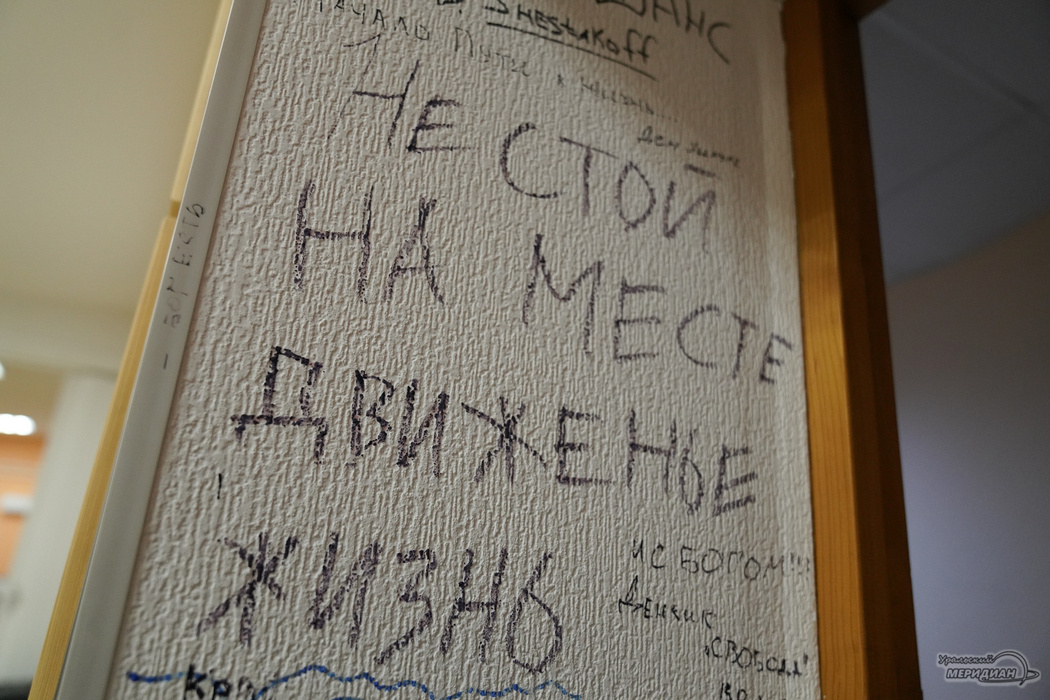 ШАНС
SHESTAKOFF
НАЧАЛО ПУТИ К ЖИЗНИ...
НЕ СТОЙ
НА МЕСТЕ
ДВИЖЕНЬЕ
ЖИЗНЬ
И С БОГОМ!!!
ДЕНЧИК
"СВОБОДА"
Уральский
МЕРИДИАН